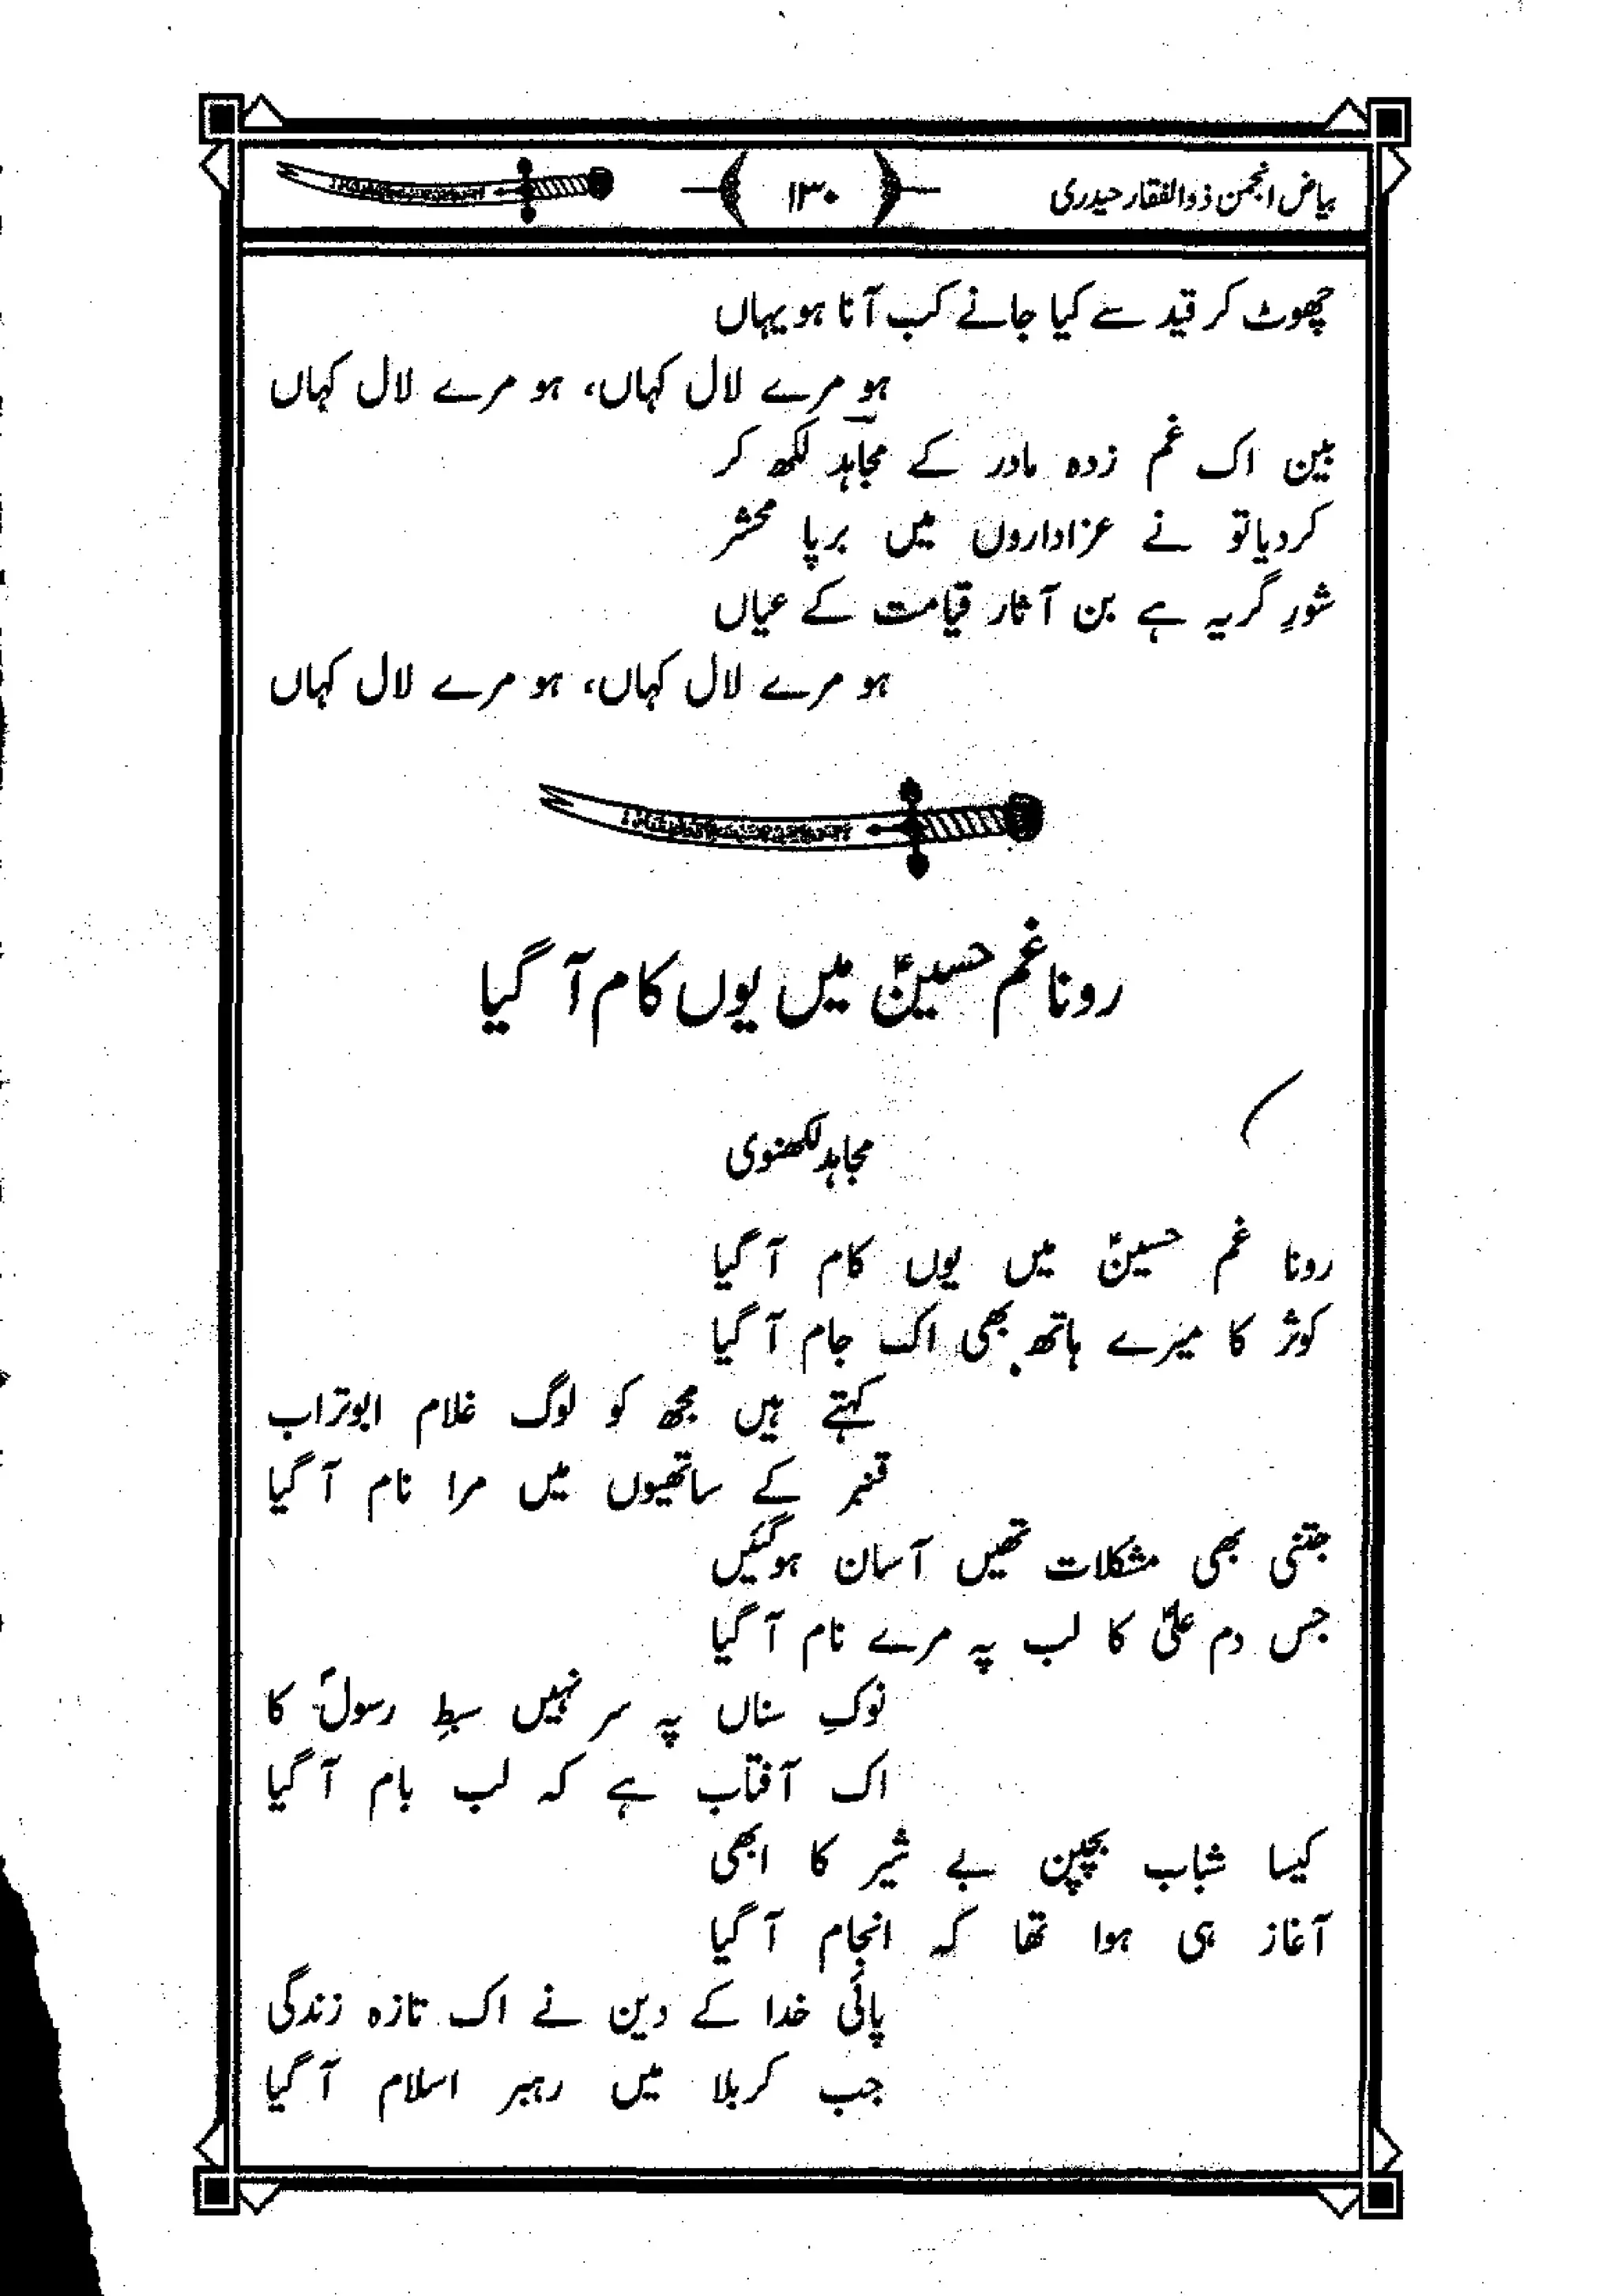 بیاض انجمن ذوالفقار حیدری
۱۳۰
چھوٹ کر قید سے کیا جانے کب آنا ہو یہاں
ہو مرے لال کہاں، ہو مرے لال کہاں
بین اک غم زدہ مادر کے مجاہدؔ لکھ کر
کردیا تو نے عزاداروں میں برپا محشر
شورِ گریہ ہے بن آثار قیامت کے عیاں
ہو مرے لال کہاں، ہو مرے لال کہاں
رونا غم حسینؑ میں یوں کام آ گیا
مجاہد لکھنوی
رونا غم حسینؑ میں یوں کام آ گیا
کوثر کا میرے ہاتھ بھی اک جام آ گیا
کہتے ہیں مجھ کو لوگ غلام ابوتراب
قنبر کے ساتھیوں میں مرا نام آ گیا
جتنی بھی مشکلات تھیں آسان ہوگئیں
جس دم علیؑ کا لب پہ مرے نام آ گیا
نوکِ سناں پہ سر نہیں سبطِ رسولؐ کا
اک آفتاب ہے کہ لب بام آ گیا
کیسا شباب بچپن بے شیر کا ابھی
آغاز ہی ہوا تھا کہ انجام آ گیا
پائی خدا کے دین نے اک تازہ زندگی
جب کربلا میں رہبر اسلام آ گیا